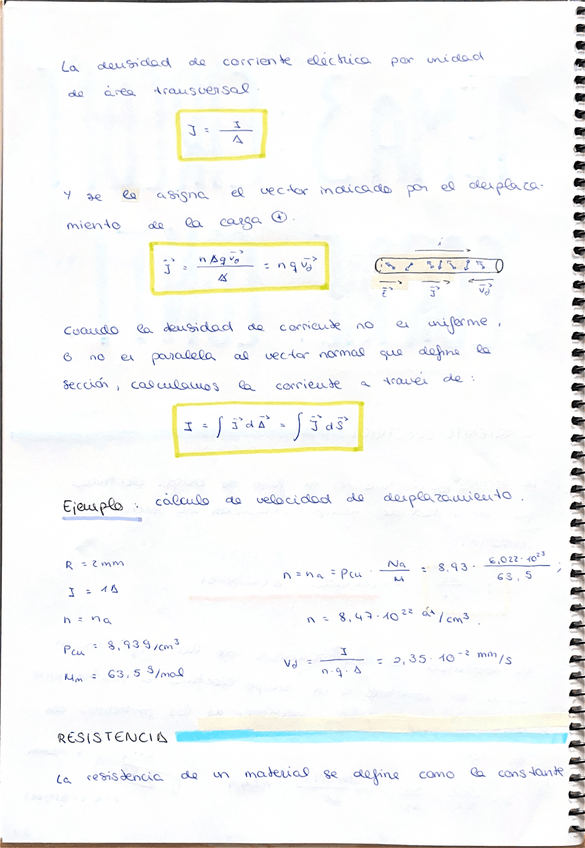 La densidad de corriente eléctrica por unidad
de área transversal.
J = I / A
Y se le asigna el vector indicado por el desplaza-
miento de la carga ⊕.
J⃗ = n A q v⃗d / A = n q v⃗d
i
E⃗ J⃗ v⃗d
Cuando la densidad de corriente no es uniforme,
o no es paralela al vector normal que define la
sección, calculamos la corriente a través de:
I = ∫ J⃗ d A⃗ = ∫ J⃗ d S⃗
Ejemplo: cálculo de velocidad de desplazamiento.
R = 2mm
I = 1A
n = na
ρcu = 8,93 g/cm³
Mm = 63,5 g/mol
n = na = ρcu · Na / M = 8,93 · 6,022·10²³ / 63,5 ;
n = 8,47·10²² at/cm³.
vd = I / n·q·A = 2,35·10⁻² mm/s
RESISTENCIA
La resistencia de un material se define como la constante